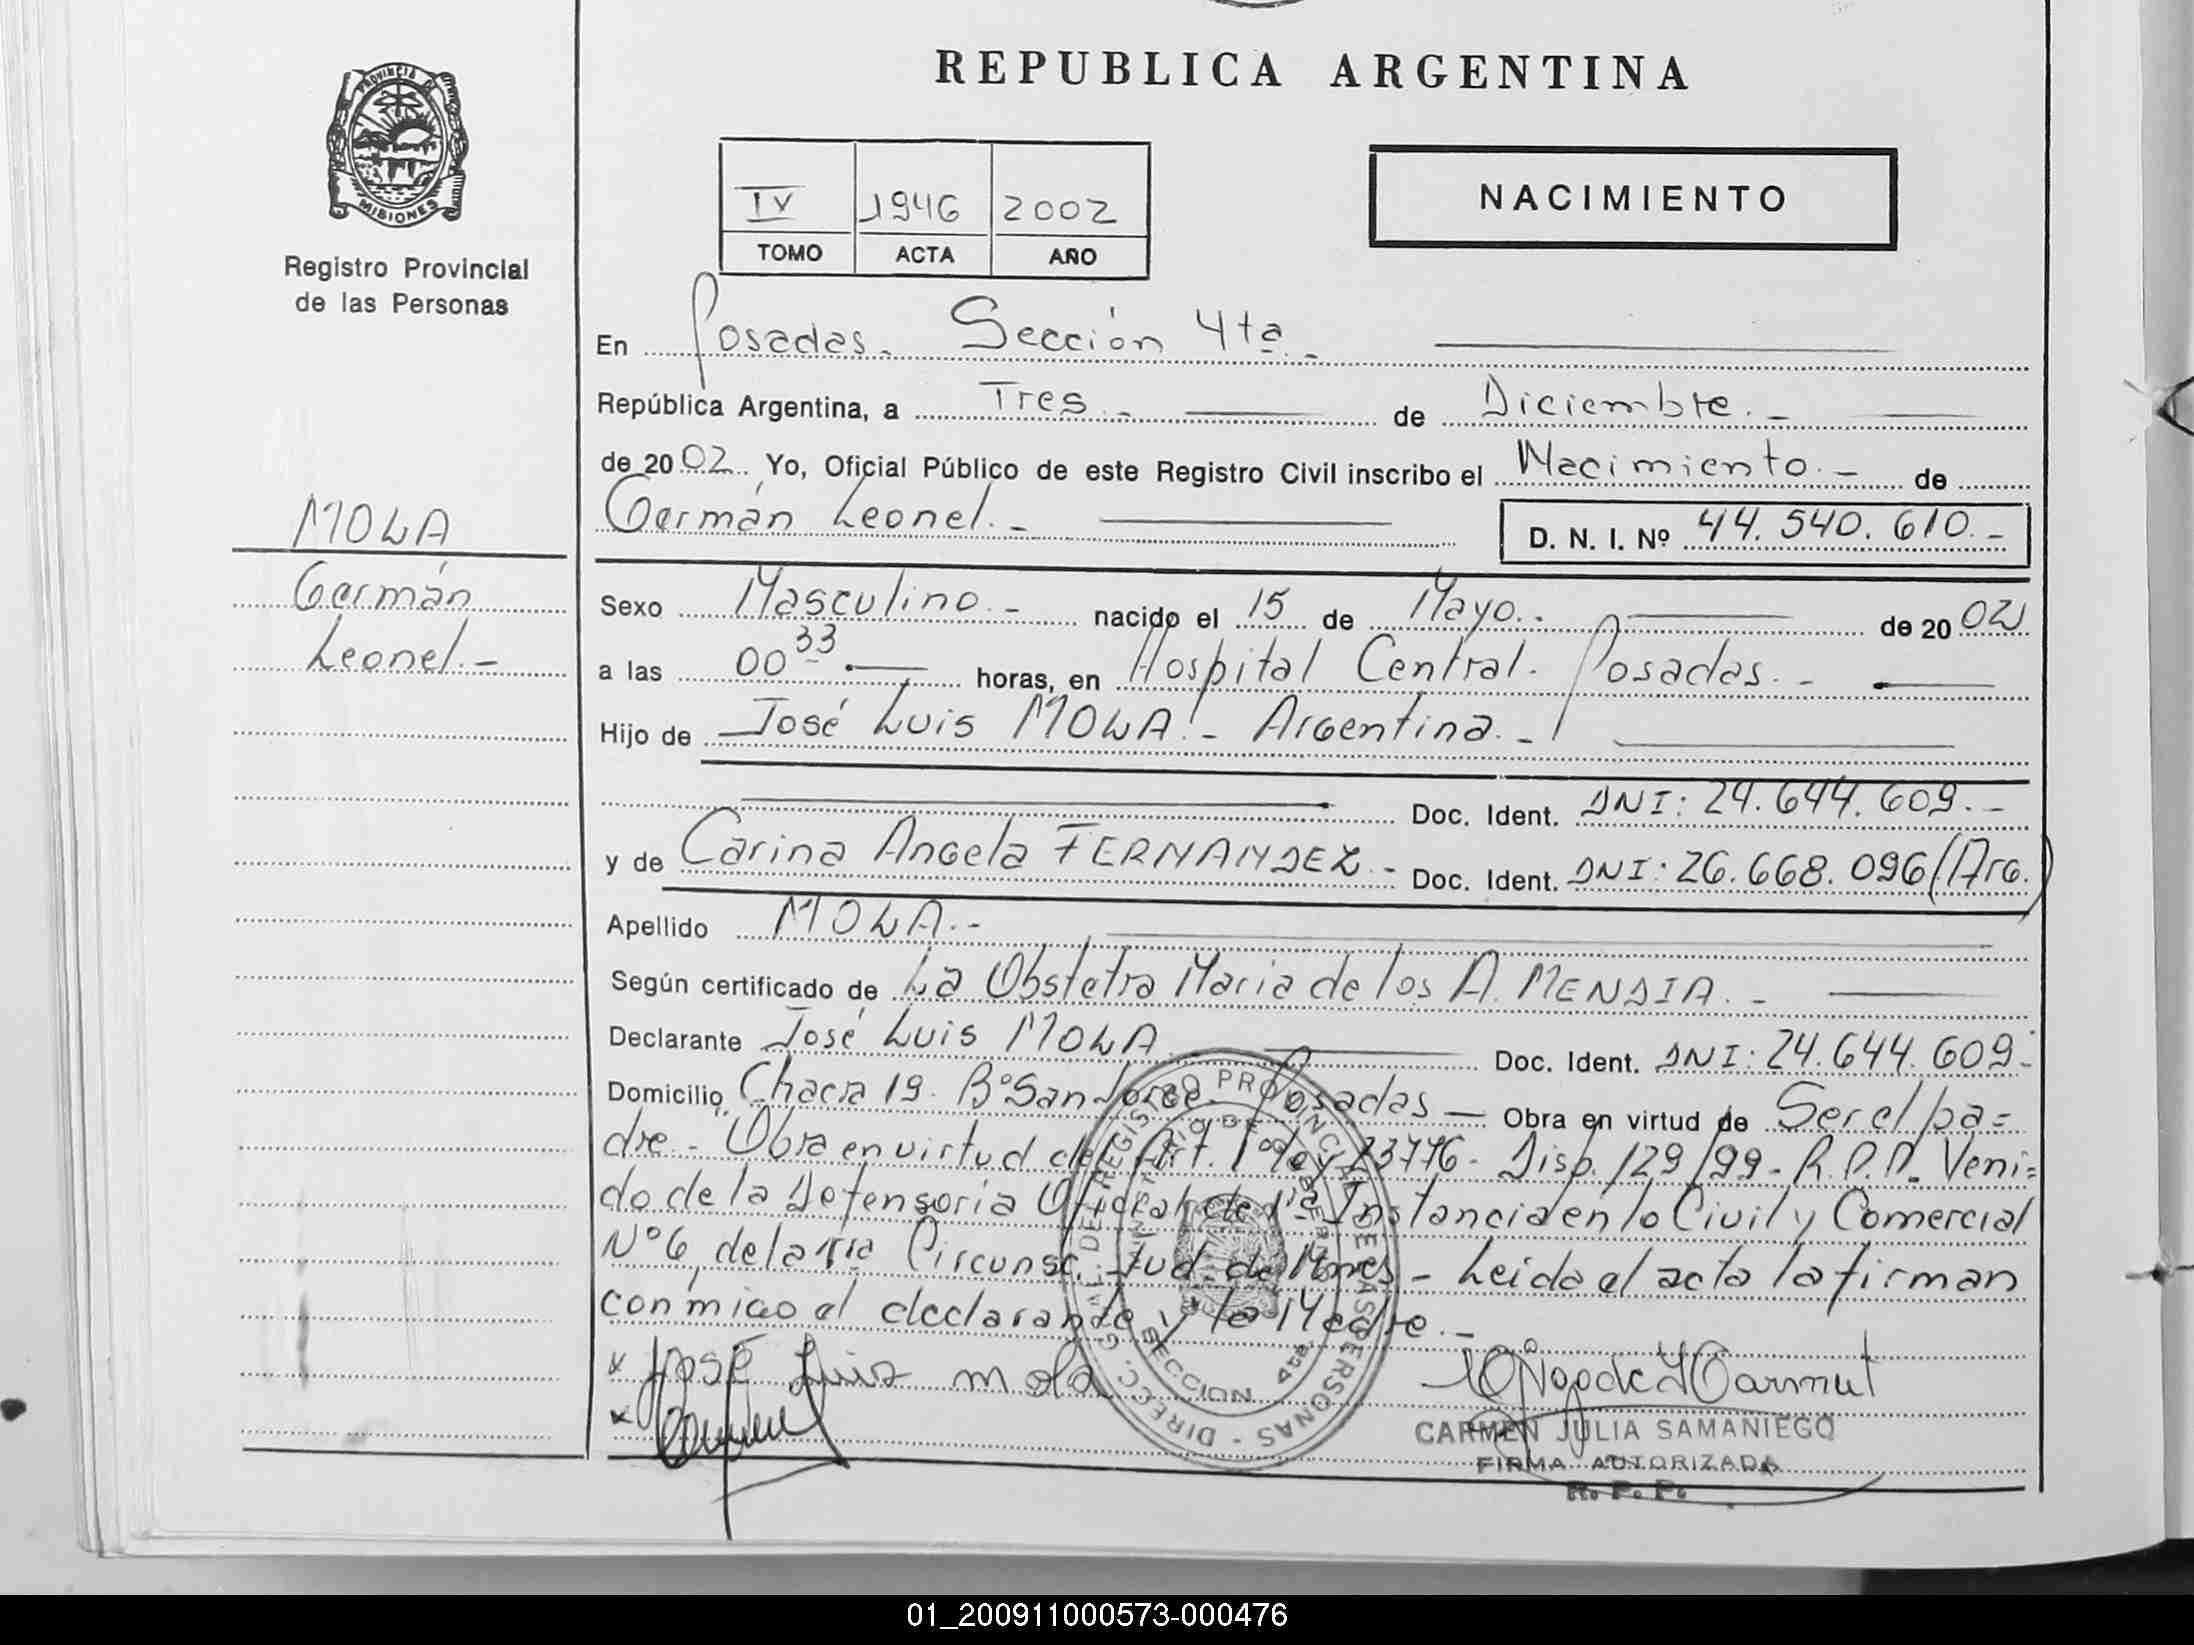 REPUBLICA ARGENTINA
PROVINCIA DE
MISIONES
Registro Provincial
de las Personas
IV 1946 2002
TOMO ACTA AÑO
NACIMIENTO
En Posadas. Sección 4ta.-
República Argentina, a Tres.- de Diciembre.-
de 2002. Yo, Oficial Público de este Registro Civil inscribo el Nacimiento.- de
Germán Leonel.- D. N. I. Nº 44.540.610.-
MOLA
Germán
Leonel.-
Sexo Masculino.- nacido el 15 de Mayo.. de 2002
a las 00 33 horas, en Hospital Central. Posadas.-
Hijo de José Luis MOLA.- Argentina.-
Doc. Ident. DNI: 24.644.609.-
y de Carina Angela FERNANDEZ.- Doc. Ident. DNI: 26.668.096 (Arg.)
Apellido MOLA.-
Según certificado de La Obstetra Maria de los A. MENDIA.-
Declarante José Luis MOLA Doc. Ident. DNI: 24.644.609.
Domicilio Chacra 19. Bº San Jorge. Posadas — Obra en virtud de Ser el pa=
dre.- Obra en virtud del Art. 1º Ley 23776- Disp. 129/99- R.P.P. Veni=
do de la Defensoria Oficial de 1ra Instancia en lo Civil y Comercial
Nº 6, de la 1ra Circunsc. Jud. de Mnes - Leida el acta la firman
conmigo el declarante y la Madre.-
x JOSÉ Luis mola
x
DIRECC. GRAL. DEL REGISTRO PROVINCIAL DE LAS PERSONAS -
MINISTERIO DE GOBIERNO
SECCION 4ta.
CARMEN JULIA SAMANIEGO
FIRMA AUTORIZADA
R. P. P.
01_200911000573-000476